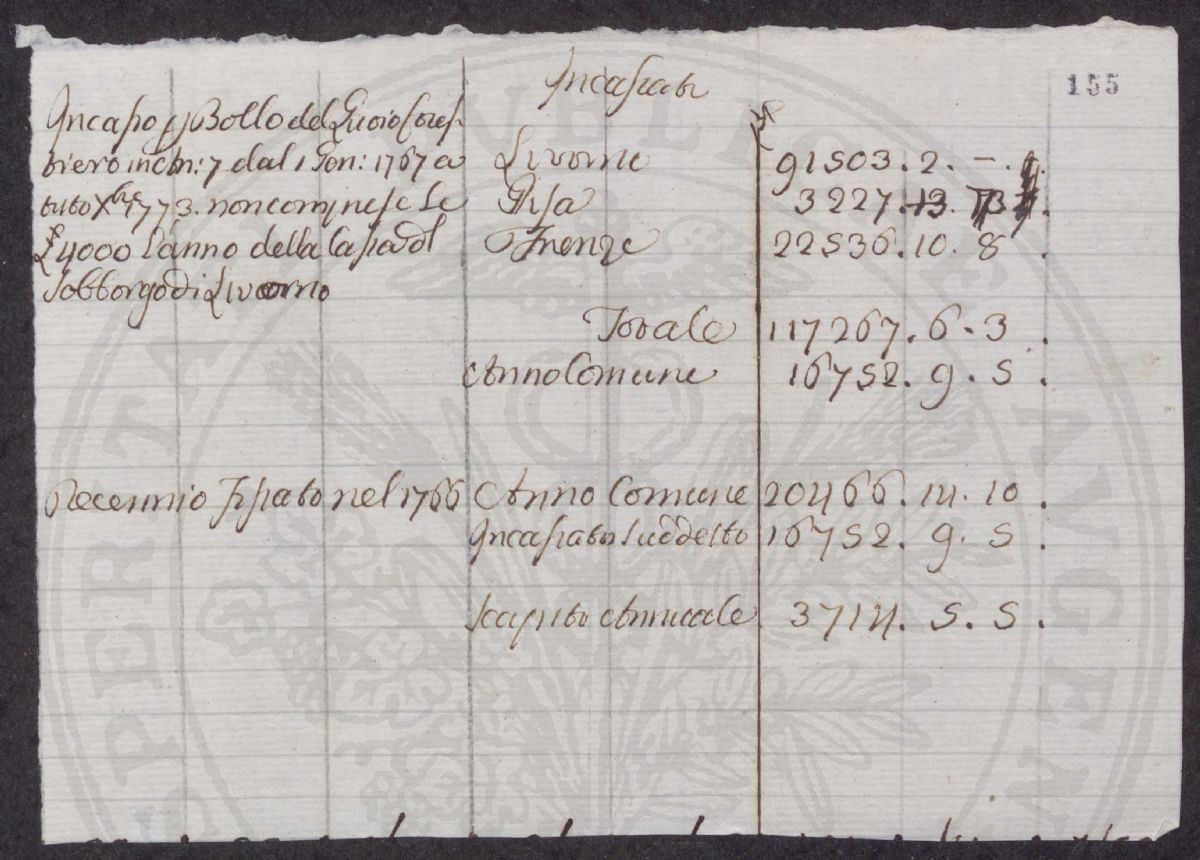 155
Incassati
Incasso p Bollo del Quoio fores-
tiero inclu: 7 dal 1 Gen: 1767 a
tutto Xbre 1773. non comprese le
£ 4000 l'anno della Cassa del
Sobborgo di Livorno
Livorno 91503. 2. –.
Pisa 3227.
Firenze 22536. 10. 8.
Totale 117267. 6. 3.
Anno Comune 16752. 9. 5.
Decennio spirato nel 1766 Anno Comune 20466. 14. 10.
Incassato suddetto 16752. 9. 5.
Scapito Annuale 3714. 5. 5.